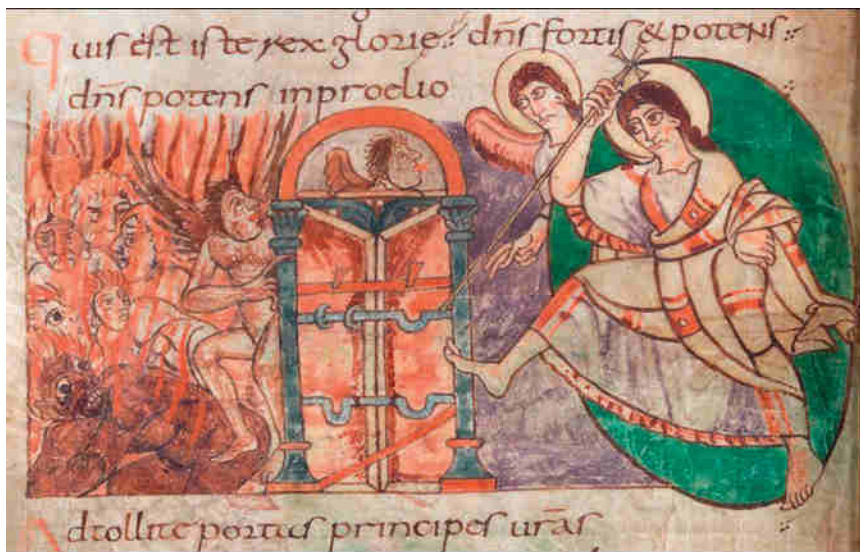 Quis est iste rex glorie dn̄s fortis & potens
dn̄s potens in proelio
Adtollite portas principes ur̄as